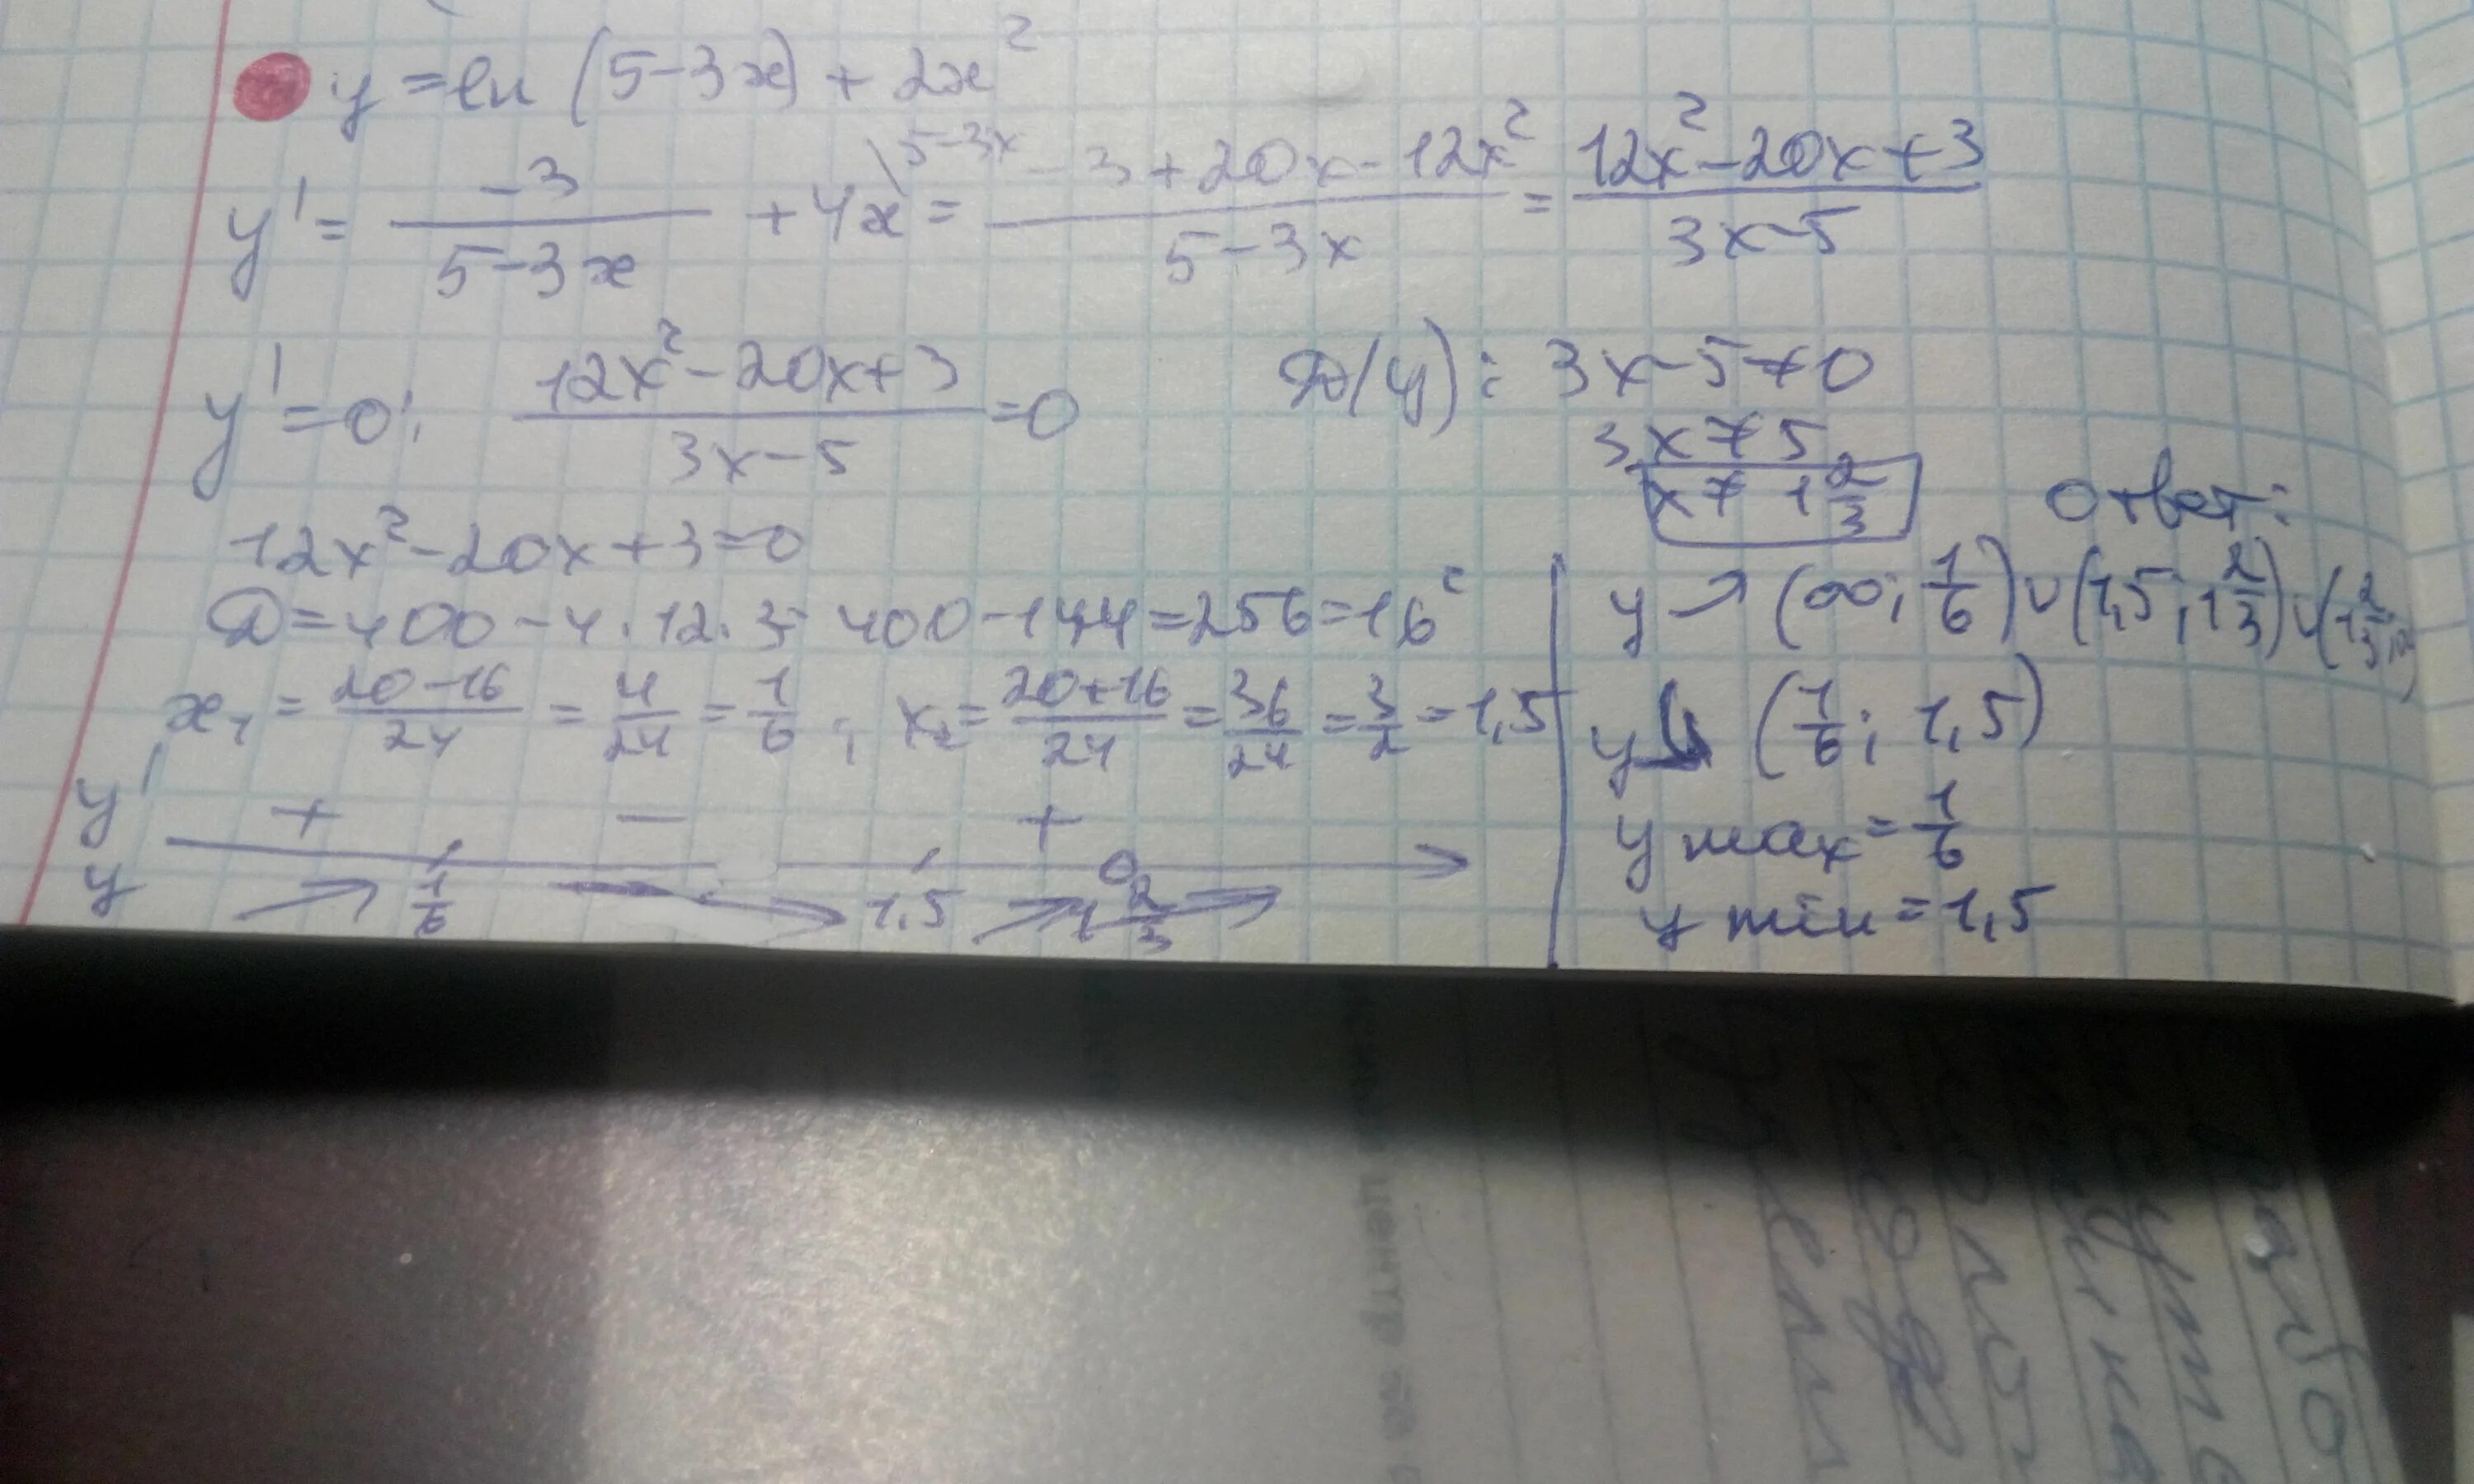 y = ln (5-3x) + 2x²
y' = -3/(5-3x) + 4x\5-3x = (-3+20x-12x²)/(5-3x) = (12x²-20x+3)/(3x-5)
y'=0: (12x²-20x+3)/(3x-5) = 0
D(y): 3x-5≠0
3x≠5
x≠ 1 2/3
12x²-20x+3=0
D=400-4·12·3= 400-144=256=16²
x₁ = (20-16)/24 = 4/24 = 1/6 ; x₂ = (20+16)/24 = 36/24 = 3/2 = 1,5
y' + - +
y ↗ 1/6 ↘ 1,5 ↗ 1 2/3 ↗
Ответ:
y ↗ (∞; 1/6) ∪ (1,5; 1 2/3) ∪ (1 2/3;
y ↘ (1/6; 1,5)
y max = 1/6
y min = 1,5
центр